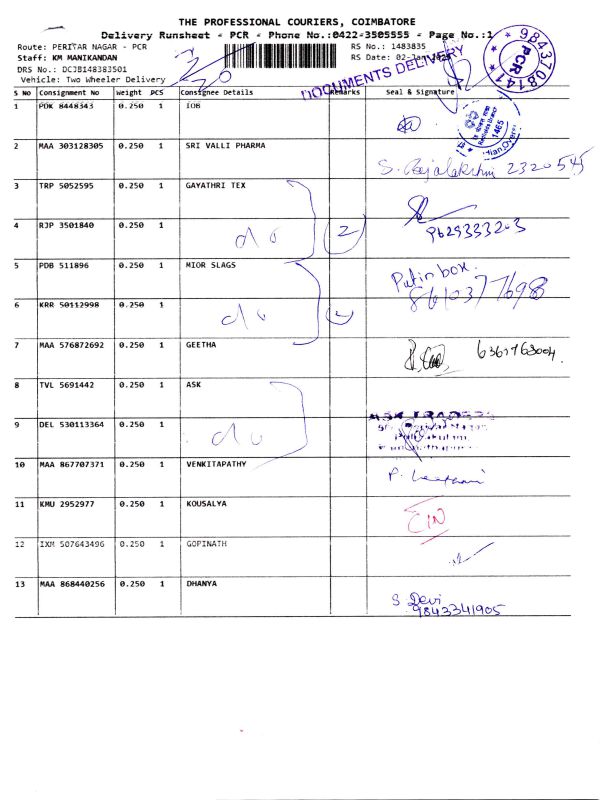 THE PROFESSIONAL COURIERS, COIMBATORE
Delivery Runsheet - PCR - Phone No.:0422-3505555 - Page No.:1
Route: PERITAR NAGAR - PCR
RS No.: 1483835
Staff: KM MANIKANDAN
RS Date: 02-Jan
DRS No.: DCJB148383501
Vehicle: Two Wheeler Delivery
DOCUMENTS DELIVERY
9843708141
PCR
S No Consignment No Weight PCS Consignee Details Remarks Seal & Signature
1 PDK 8448343 0.250 1 IOB
2 MAA 303128305 0.250 1 SRI VALLI PHARMA
S. Rajalakshmi 2320545
3 TRP 5052595 0.250 1 GAYATHRI TEX
4 RJP 3501840 0.250 1
do 2
5 PDB 511896 0.250 1 MIOR SLAGS
Put in box.
6 KRR 50112998 0.250 1
do
7 MAA 576872692 0.250 1 GEETHA
8 TVL 5691442 0.250 1 ASK
ASK TRADERS
9 DEL 530113364 0.250 1
do
10 MAA 867707371 0.250 1 VENKITAPATHY
11 KMU 2952977 0.250 1 KOUSALYA
12 IXM 507643496 0.250 1 GOPINATH
13 MAA 868440256 0.250 1 DHANYA
S Devi
9843341905